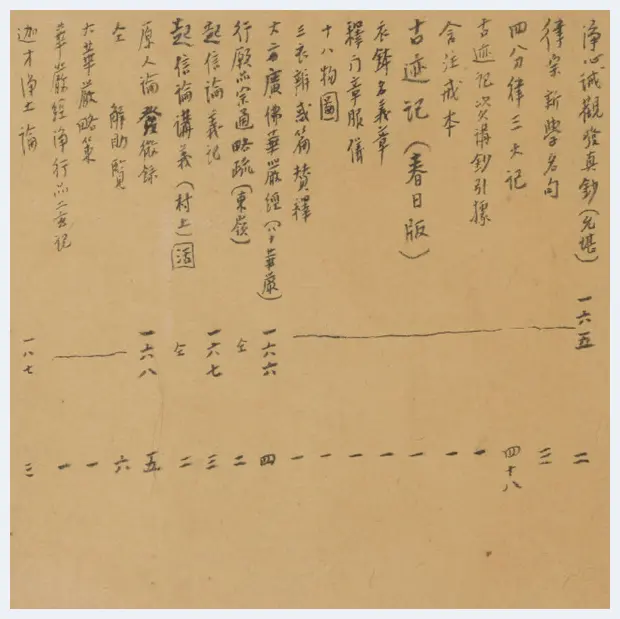 淨心誡觀發真鈔(允堪) 一六五 二
律宗新學名句 三
四分律三大記 四十八
古迹記次講鈔引據 一
含注戒本 一
古迹記(春日版) 一
衣鉢名義章 一
釋門章服儀 一
十八物圖 一
三衣辨惑篇賛釋 一
大方廣佛華嚴經(八十華嚴) 一六六 四
行願品宗通略疏(東嶺) 仝 二
起信論義記 一六七 三
起信論講義(村上) 活 仝 二
原人論發微録 一六八 五
仝 解助覧 六
大華嚴略策 一
華嚴經淨行品二玄記 一
迦才淨土論 一八七 三